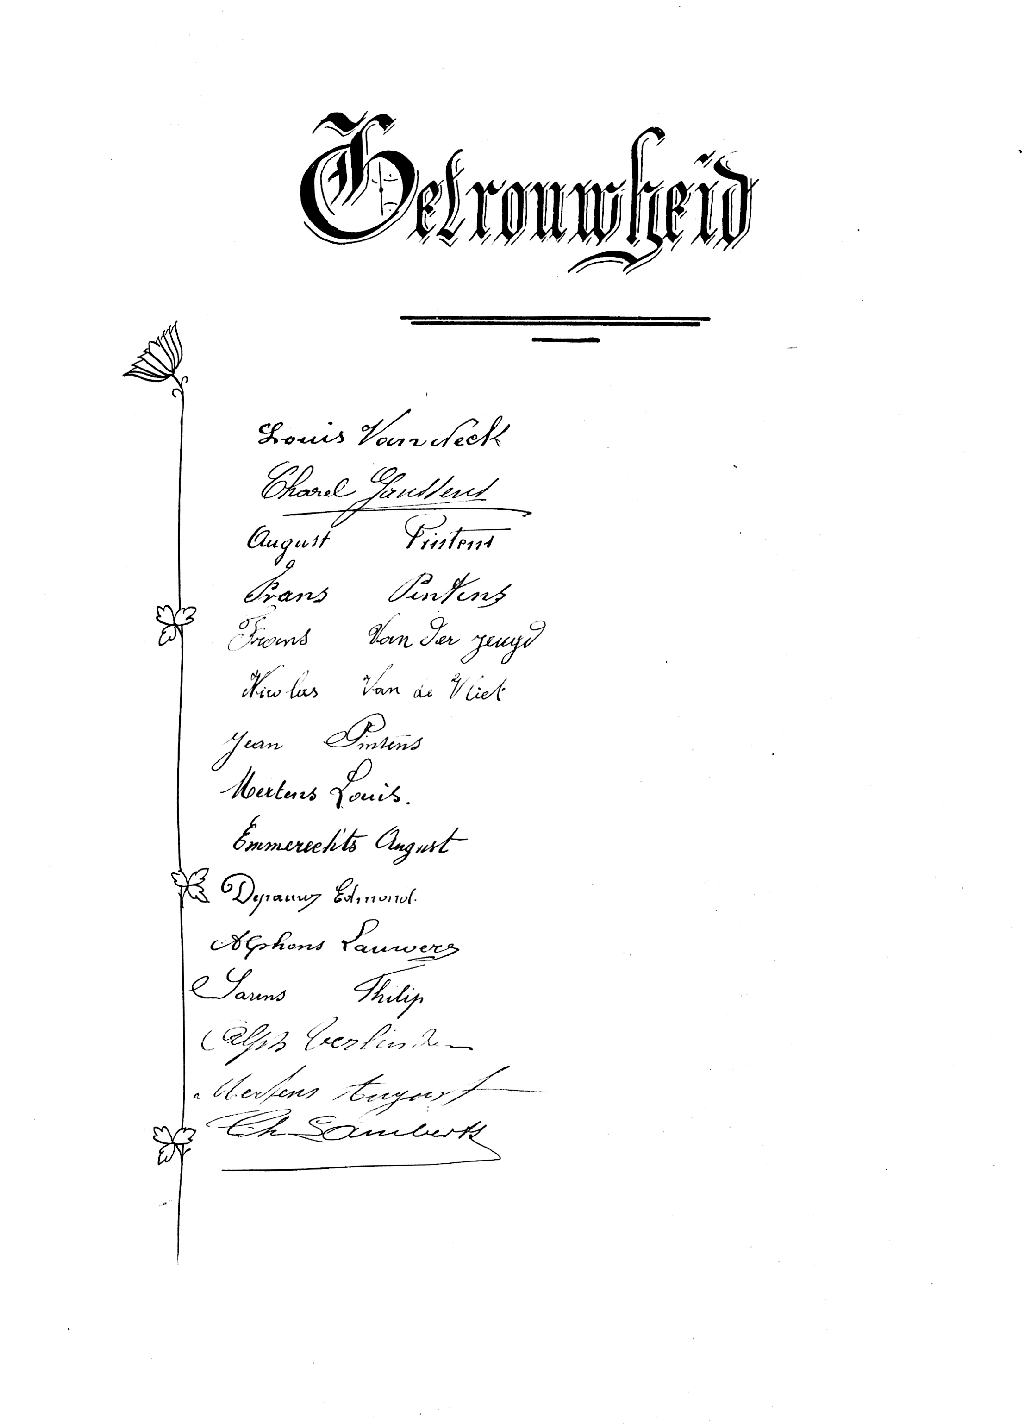 Getrouwheid
Louis Van Neck
Charel Goussens
August Pintens
Frans Pintens
Frans Van der Jeugd
Nicolas Van de Vliet
Jean Pintens
Mertens Louis.
Emmerechts August
Depauw Edmond.
Alphons Lauwers
Sarens Philip
Alph Verlinden
Mertens August
Ch Lamberts